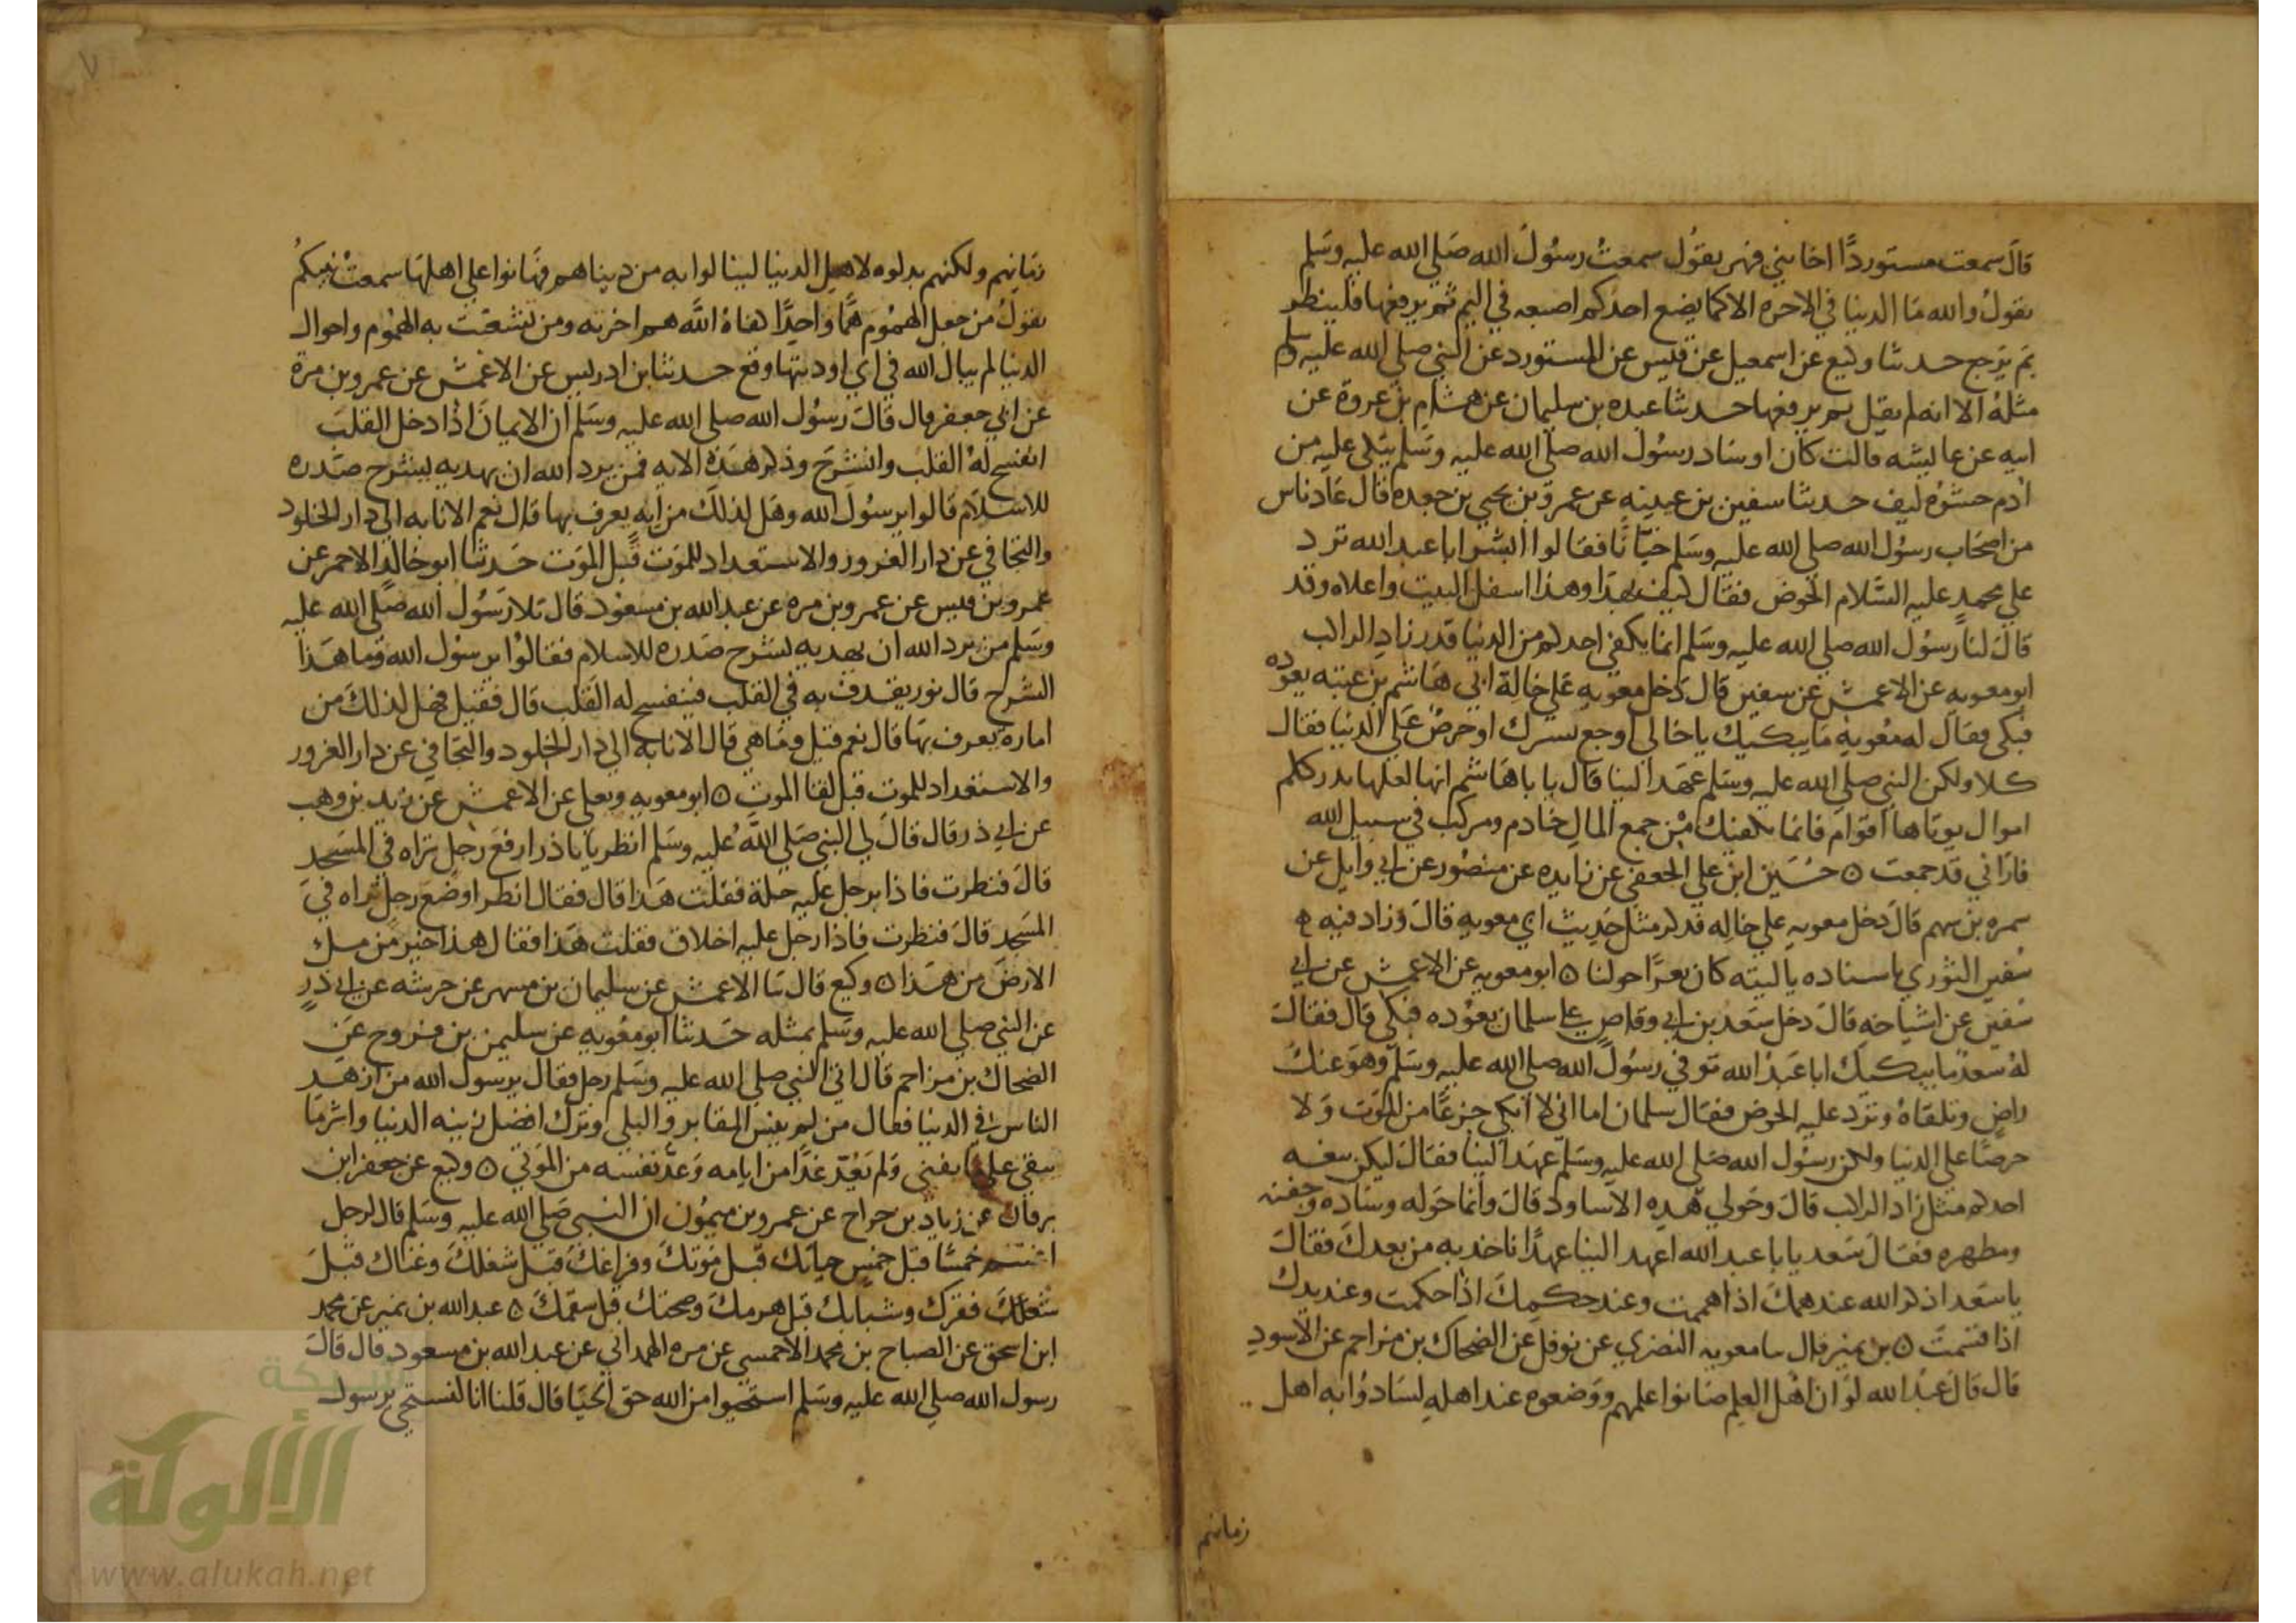 قال سمعت مستوردًا اخا بني فهر يقول سمعت رسول الله صلي الله عليه وسلم
يقول والله ما الدنيا في الاخره الا كما يضع احدكم اصبعه في اليم ثم يرفعها فلينظر
بم يرجع حدثنا وكيع عن اسمعيل عن قيس عن المستورد عن النبي صلي الله عليه وسلم
مثله الا انه لم يقل ثم يرفعها حدثنا عبده بن سليمان عن هشام بن عروة عن
ابيه عن عايشه قالت كان اوساد رسول الله صلي الله عليه وسلم يتكي عليه من
ادم حشوه ليف حدثنا سفين بن عيينه عن عمرو بن يحيي بن جعده قال عاد ناس
من اصحاب رسول الله صلي الله عليه وسلم خبابًا فقالوا ابشر ابا عبد الله ترد
علي محمد عليه السلام الحوض فقال كيف بهذا وهذا اسفل البيت واعلاه وقد
قال لنا رسول الله صلي الله عليه وسلم انما يكفي احدكم من الدنيا قدر زاد الراكب
ابو معويه عن الاعمش عن سفين قال دخل معويه علي خاله ابي هاشم بن عتبه يعوده
فبكي فقال له معويه ما يبكيك يا خالي اوجع يسرك او حرص علي الدنيا فقال
كلا ولكن النبي صلي الله عليه وسلم عهد الينا قال يا با هاشم انها لعلها تدرككم
اموال يوتاها اقوام فانما يكفيك من جمع المال خادم ومركب في سبيل الله
فاراني قد جمعت ه حسين ابن علي الجعفي عن زايده عن منصور عن ابي وايل عن
سمره بن سهم قال دخل معويه علي خاله فذكر مثل حديث ابي معويه قال وزاد فيه
سفين الثوري باسناده يا ليته كان بعرًا حولنا ه ابو معويه عن الاعمش عن ابي
سفين عن اشياخه قال دخل سعد بن ابي وقاص علي سلمان يعوده فبكي قال فقال
له سعد ما يبكيك ابا عبد الله توفي رسول الله صلي الله عليه وسلم وهو عنك
راض وتلقاه وترد عليه الحوض فقال سلمان اما اني لا ابكي جزعًا من الموت ولا
حرصًا علي الدنيا ولكن رسول الله صلي الله عليه وسلم عهد الينا فقال ليكن بلغه
احدكم مثل زاد الراكب قال وحولي هذه الاساود قال وانما حوله وساده وجفنه
ومطهره فقال سعد يا با عبد الله اعهد الينا عهدًا ناخذ به من بعدك فقال
يا سعد اذكر الله عند همك اذا هممت وعند حكمك اذا حكمت وعند يدك
اذا قسمت ه بن نمير قال نا معويه النصري عن نوفل عن الضحاك بن مزاحم عن الاسود
قال قال عبد الله لو ان اهل العلم صانوا علمهم ووضعوه عند اهله لسادوا به اهل
زمانهم
زمانهم ولكنهم بدلوه لاهل الدنيا لينالوا به من دنياهم فهانوا علي اهلها سمعت نبيكم
يقول من جعل الهموم همًا واحدًا كفاه الله هم اخرته ومن تشعبت به الهموم واحوال
الدنيا لم يبال الله في اي اوديتها وقع حدثنا بن ادريس عن الاعمش عن عمرو بن مرة
عن ابي جعفر قال قال رسول الله صلي الله عليه وسلم ان الايمان اذا دخل القلب
انفسح له القلب وانشرح وذكر هذه الايه فمن يرد الله ان يهديه ليشرح صدره
للاسلام قالوا يرسول الله وهل لذلك من ايه يعرف بها قال نعم الانابه الي دار الخلود
والتجافي عن دار الغرور والاستعداد للموت قبل الموت حدثنا ابو خالد الاحمر عن
عمرو بن قيس عن عمرو بن مره عن عبد الله بن مسعود قال تلا رسول الله صلي الله عليه
وسلم من يرد الله ان يهديه يشرح صدره للاسلام فقالوا يرسول الله وما هذا
الشرح قال نور يقذف به في القلب فينفسح له القلب قال فقيل فهل لذلك من
امارة يعرف بها قال نعم قيل وما هي قال الانابه الي دار الخلود والتجافي عن دار الغرور
والاستعداد للموت قبل لقا الموت ه ابو معويه ويعلي عن الاعمش عن زيد بن وهب
عن ابي ذر قال قال لي النبي صلي الله عليه وسلم انظر يا باذر ارفع رجل تراه في المسجد
قال فنظرت فاذا برجل عليه حلة فقلت هذا قال فقال انظر اوضع رجل تراه في
المسجد قال فنظرت فاذا رجل عليه اخلاق فقلت هذا فقال هذا خير من ملء
الارض من هذا ه وكيع قال نا الاعمش عن سليمان بن مسهر عن خرشه عن ابي ذر
عن النبي صلي الله عليه وسلم بمثله حدثنا ابو معويه عن سليمن بن فروخ عن
الضحاك بن مزاحم قال اتي النبي صلي الله عليه وسلم رجل فقال يرسول الله من ازهد
الناس في الدنيا فقال من لم ينس المقابر والبلي وترك افضل زينه الدنيا واثر ما
يبقي علي ما يفني ولم يعد غدًا من ايامه وعد نفسه من الموتي ه وكيع عن جعفر ابن
برقان عن زياد بن جراح عن عمرو بن ميمون ان النبي صلي الله عليه وسلم قال لرجل
اغتنم خمسًا قبل خمس حياتك قبل موتك وفراغك قبل شغلك وغناك قبل
فقرك وشبابك قبل هرمك وصحتك قبل سقمك ه عبد الله بن نمير عن محمد
ابن اسحق عن الصباح بن محمد الاحمسي عن مره الهمداني عن عبد الله بن مسعود قال قال
رسول الله صلي الله عليه وسلم استحيوا من الله حق الحيا قال قلنا انا لنستحي يرسول
شبكة
الألوكة
www.alukah.net